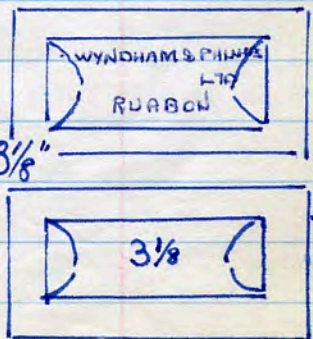 WYNDHAM & PHILLIPS
LTD
RUABON
3 1/8"
3 1/8